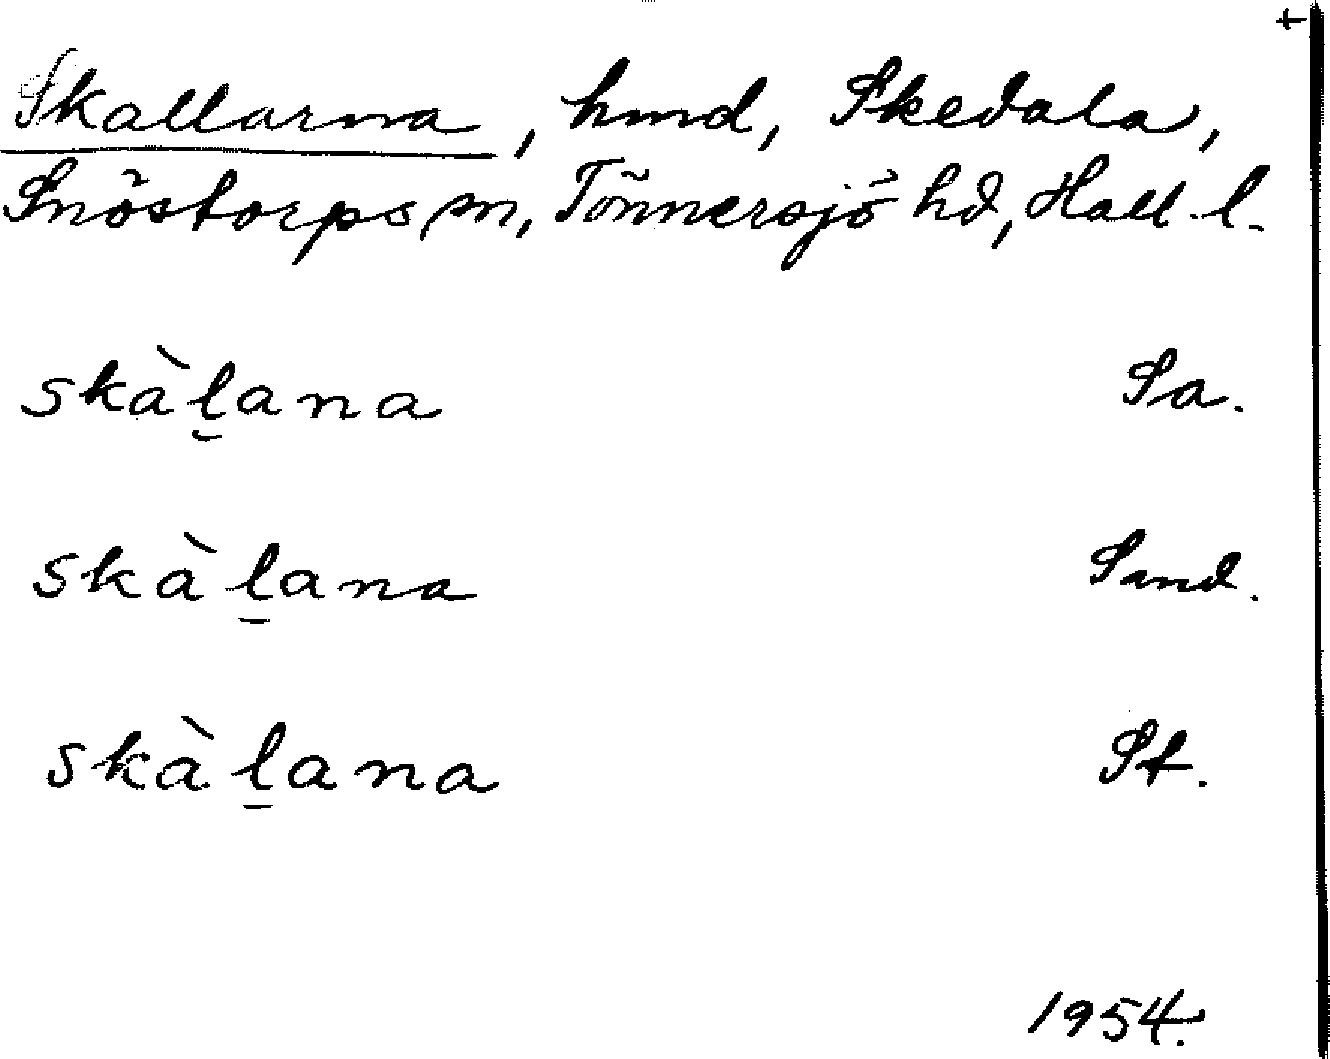 +
Skallarna, hmd, Skedala,
Snöstorps sn, Tönnersjö hd, Hall. l.
skàl̠ana Sa.
skàl̠ana Sand.
skàl̠ana St.
1954.